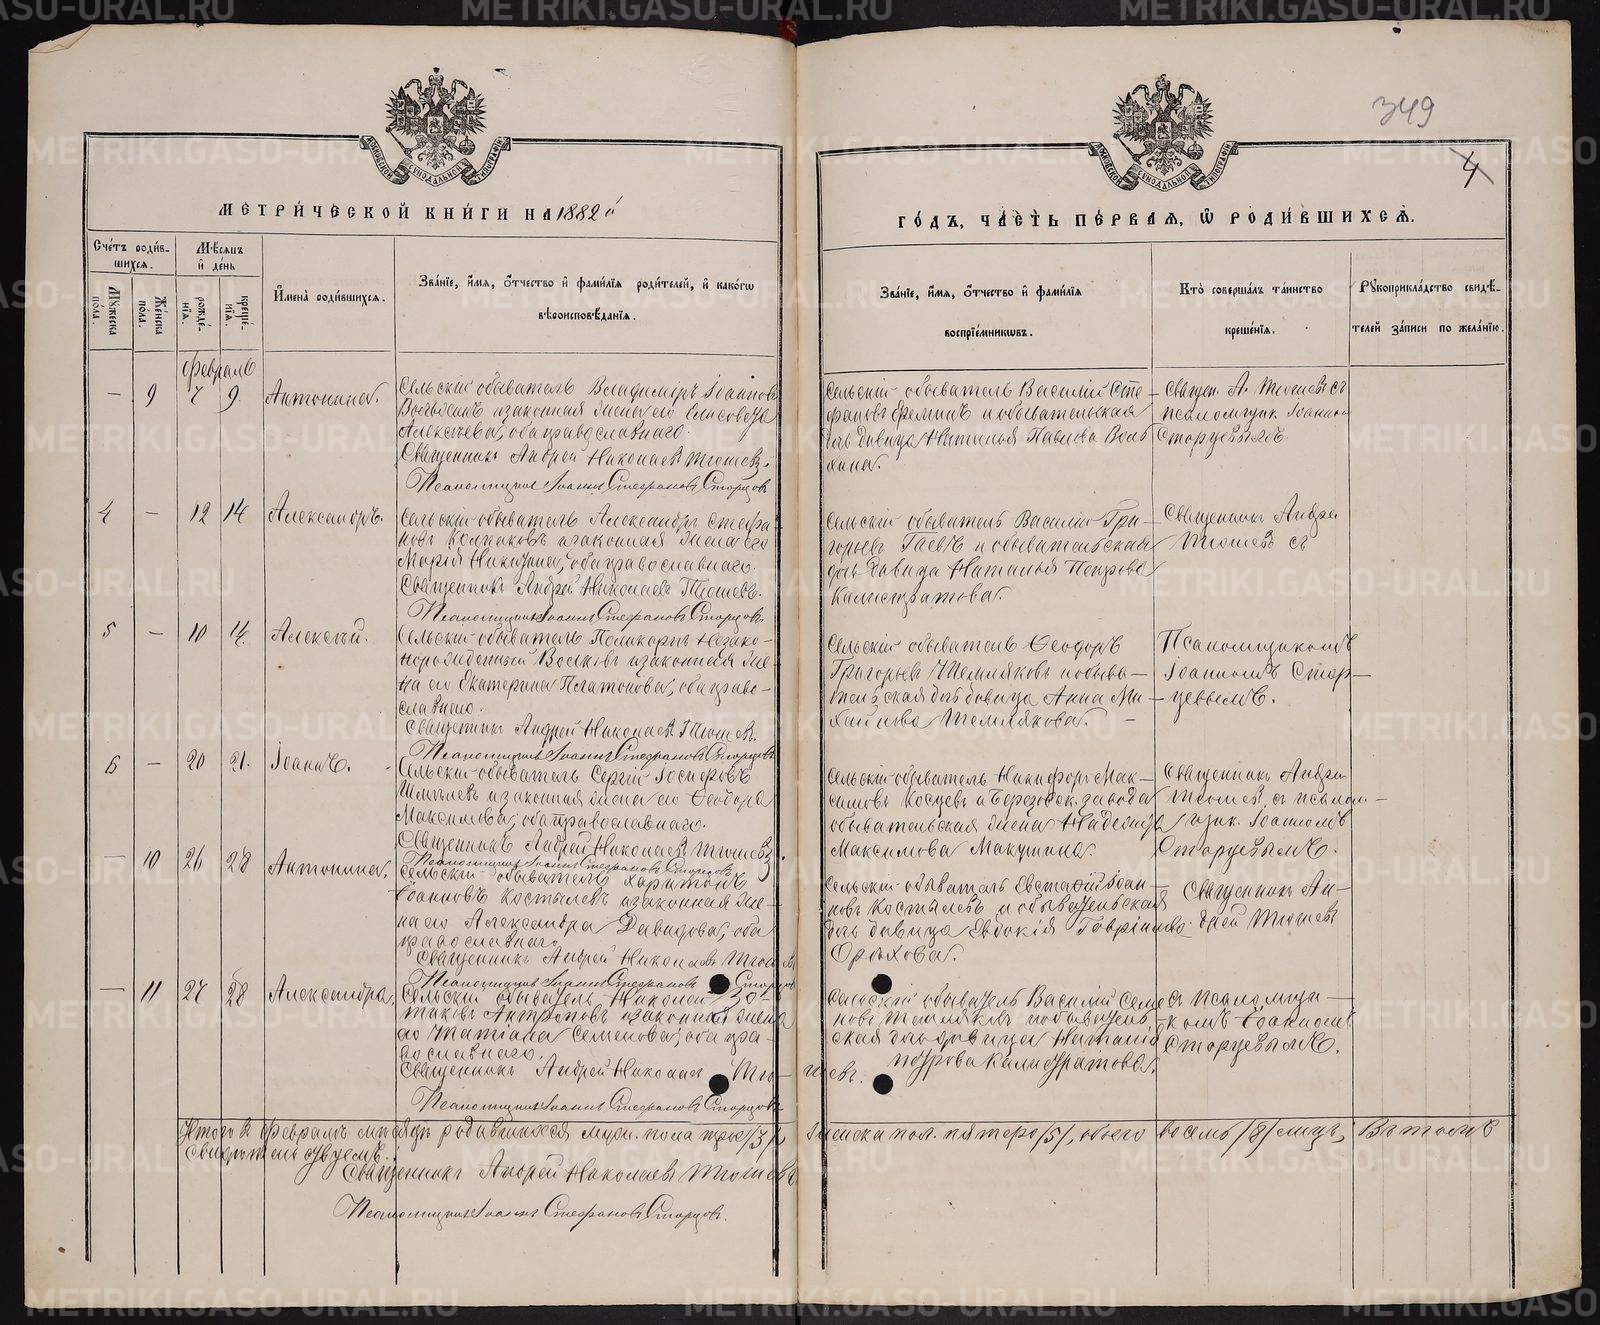 349
4
МЕТРИ́ЧЕСКОЙ КНИ́ГИ НА 1882й
ГО́ДЪ, ЧА́СТЬ ПЕ́РВАЯ, Ѡ РОДИ́ВШИХСѦ.
Сче́тъ роди́вшихсѧ.
Мѣ́сѧцъ и҆ де́нь
Мꙋ́жеска по́ла.
Же́нска по́ла.
рожде́нїѧ.
креще́нїѧ.
И҆мена̀ роди́вшихсѧ.
Зва́нїе, и҆́мѧ, ѻ҆́тчество и҆ фами́лїѧ роди́телей, и҆ како́гѡ вѣроисповѣ́данїѧ.
Зва́нїе, и҆́мѧ, ѻ҆́тчество и҆ фами́лїѧ воспрїе́мникѡвъ.
Кто̀ соверша́лъ та́инство креще́нїѧ.
Рꙋкоприкла́дство свидѣ́телей за́писи по жела́нїю.
Февраль
— 9 7 9 Антонина.
Сельскій обыватель Владиміръ Іоанновъ
и законная жена его Елисавета
Алексѣева, оба православнаго.
Священникъ Андрей Николаевъ Тюшевъ.
Псаломщикъ Іоаннъ Стефановъ Старцовъ
Сельскій обыватель Василій Сте-
фановъ Ереминъ и обывательская
дочь девица Наталья Павлова
Священ. А. Тюшевъ съ
псаломщик. Іоанномъ
Старцевымъ.
4 — 12 14 Александръ.
Сельскій обыватель Александръ Стефа-
новъ Колпаковъ и законная жена его
Марія Никитина, оба православнаго.
Священникъ Андрей Николаевъ Тюшевъ.
Псаломщикъ Іоаннъ Стефановъ Старцовъ.
Сельскій обыватель Василій Гри-
горьевъ и обывательская
дочь девица Наталья Петрова
Калистратова.
Священникъ Андрей
Тюшевъ съ
5 — 10 14 Алексѣй.
Сельскій обыватель Поликарпъ Незако-
норожденный Волковъ и законная же-
на его Екатерина Платонова, оба право-
славнаго.
Священникъ Андрей Николаевъ Тюшевъ.
Псаломщикъ Іоаннъ Стефановъ Старцовъ
Сельскій обыватель Ѳеодоръ
Григорьевъ Темляковъ и обыва-
тельская дочь девица Анна Ми-
хайлова Темлякова.
Псаломщикомъ
Іоанномъ Стар-
цевымъ.
6 — 20 21 Іоаннъ.
Сельскій обыватель Сергій Іосифовъ
и законная жена его Ѳеодора
Максимова, оба православнаго.
Священникъ Андрей Николаевъ Тюшевъ
Псаломщикъ Іоаннъ Стефановъ Старцовъ
Сельскій обыватель Никифоръ Мак-
симовъ Косцевъ и Березовск. завода
обывательская жена Надежда
Максимова Макушина.
Священникъ Андрей
Тюшев. съ псалом-
щик. Іоанномъ
Старцевымъ.
— 10 26 28 Антонина.
Сельскій обыватель Харитонъ
Іоанновъ Костылевъ и законная же-
на его Александра Давидова, оба
православнаго.
Священникъ Андрей Николаевъ Тюшевъ
Псаломщикъ Іоаннъ Стефановъ Старцовъ
Сельскій обыватель Евстафій Іоан-
новъ Костылевъ и обывательская
дочь девица Евдокія Гавріилова
Орѣхова.
Священникъ Ан-
дрей Тюшевъ
— 11 27 28 Александра.
Сельскій обыватель Николай
Антиповъ и законная жена
его Татіана Семенова, оба пра-
вославнаго.
Священникъ Андрей Николаевъ Тю-
шевъ.
Псаломщикъ Іоаннъ Стефановъ Старцовъ
Сельскій обыватель Василій Семе-
новъ Темляковъ и обыватель-
ская дочь девица Наталія
Петрова Калистратова.
съ псаломщи-
комъ Іоанномъ
Старцевымъ.
Итого въ Февралѣ мѣсяцѣ родившихся муж. пола трое /3/, женска пол. пятеро /5/, обоего восемь /8/ лицъ, Въ томъ
свидѣтельствуемъ:
Священникъ Андрей Николаевъ Тюшевъ
Псаломщикъ Іоаннъ Стефановъ Старцовъ.